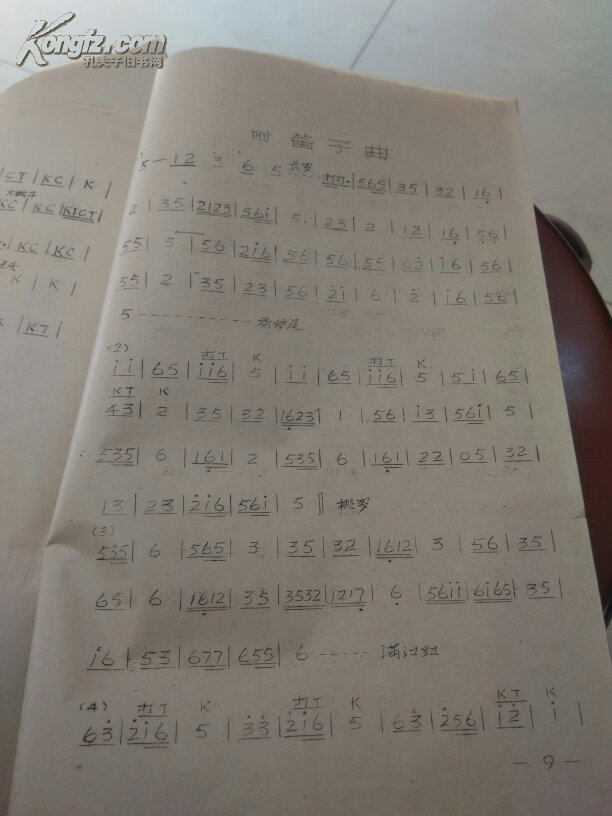 Kongfz.com
孔夫子旧书网
CT | KC | K |
KC | KC | KTCT |
KC | KC |
K | K |
KT |
附 笛 子 曲
5 — 12 3 6 5 ------ 打打· | 565 | 35 | 32 | 16 |
2 | 35 | 2123 | 56i | 5 | 23 | 2 | 12 | 16 | 56 |
55 | 5 | 56 | 2i6 | 56 | 56 | 55 | 02 | i6 | 56 |
55 | 2 | 35 | 23 | 56 | 2i | 6 | 2 | i6 | 56 |
5 ------------ 香炉尾
(2) 打T K 打T K
i i | 65 | i i 6 | 5 | i i | 65 | i i 6 | 5 | 5i | 65 |
KT K
43 | 2 | 35 | 32 | 1623 | 1 · | 56 | i3 | 56i | 5 |
535 | 6 | 161 | 2 | 535 | 6 | 161 | 22 | 05 | 32 |
13 | 23 | 2i6 | 56i | 5 ‖ 桃罗
(3)
535 | 6 | 565 | 3 | 35 | 32 | 1612 | 3 | 56 | 35 |
65 | 6 | 1612 | 35 | 3532 | 1217 | 6 | 56ii | 6i65 | 35 |
i6 | 53 | 677 | 655 | 6 ----- 满江红
(4) 打T K 打T K KT K
63 | 2i6 | 5 | 33 | 2i6 | 5 | 63 | 256 | i2 | i |
— 9 —